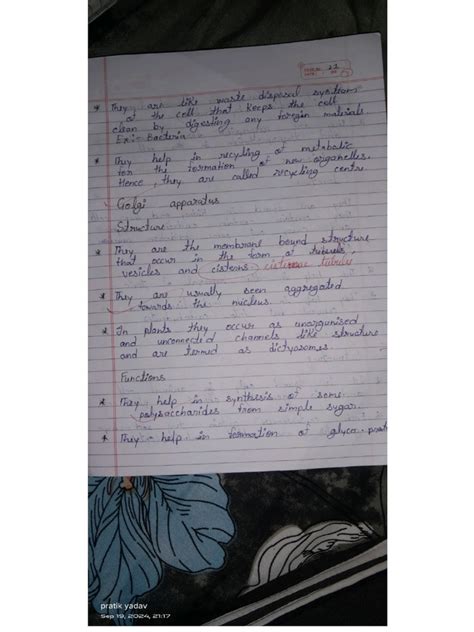 23
* They are like waste disposal system
of the cell that keeps the cell
clean by digesting any foregin materials.
Ex:- Bacteria
* They help in recycling of metabolic
for the formation of new organelles.
Hence, they are called recycling centre.
Golgi apparatus
Structure
* They are the membrane bound structure
that occur in the form of
vesicles and cisterns cisternae tubules
* They are usually seen aggregated
towards the nucleus.
* In plants they occur as unorganised
and unconnected channels like structure
and are termed as dictyosomes.
Functions
* They help in synthesis of some
polysaccharides from simple sugar.
* They help in formation of glyco-
pratik yadav
Sep 19, 2024, 21:17